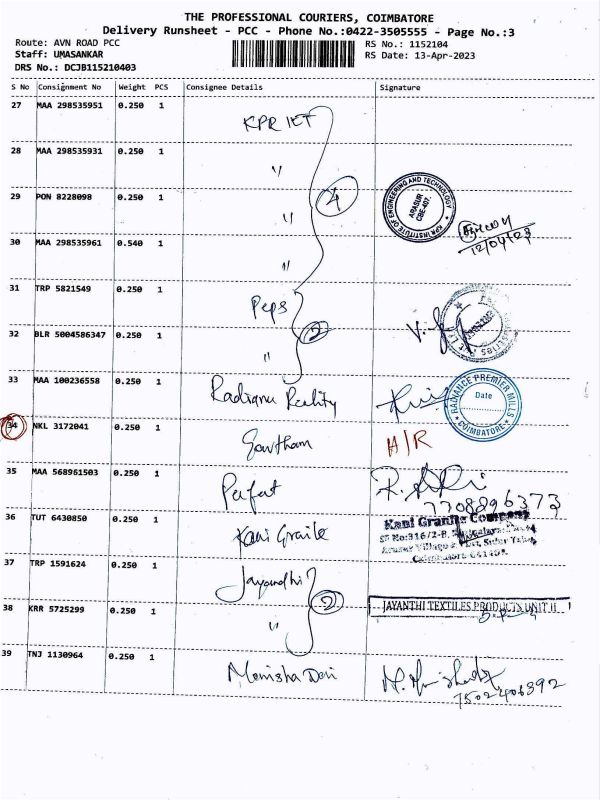 THE PROFESSIONAL COURIERS, COIMBATORE
Delivery Runsheet - PCC - Phone No.:0422-3505555 - Page No.:3
Route: AVN ROAD PCC
RS No.: 1152104
Staff: UMASANKAR
RS Date: 13-Apr-2023
DRS No.: DCJB115210403
S No Consignment No Weight PCS Consignee Details Signature
27 MAA 298535951 0.250 1 KPR IET
28 MAA 298535931 0.250 1 "
29 PON 8228098 0.250 1 " 4
KPR INSTITUTE OF ENGINEERING AND TECHNOLOGY
ARASUR
CBE-407.
30 MAA 298535961 0.540 1 "
12/04/23
31 TRP 5821549 0.250 1 Peps
32 BLR 5004586347 0.250 1 " 2
33 MAA 100236558 0.250 1 Radiance Reality
RADIANCE PREMIER MILLS
Date
COIMBATORE
34 NKL 3172041 0.250 1 Gowtham H/R
35 MAA 568961503 0.250 1 Perfect
7708896373
36 TUT 6430850 0.250 1 Kani Granite
Kani Granite Company
SF No:316/2-B,
37 TRP 1591624 0.250 1 Jayandhi
38 KRR 5725299 0.250 1 " 2
JAYANTHI TEXTILES PRODUCTS UNIT II
39 TNJ 1130964 0.250 1 Monisha Devi
7502406392